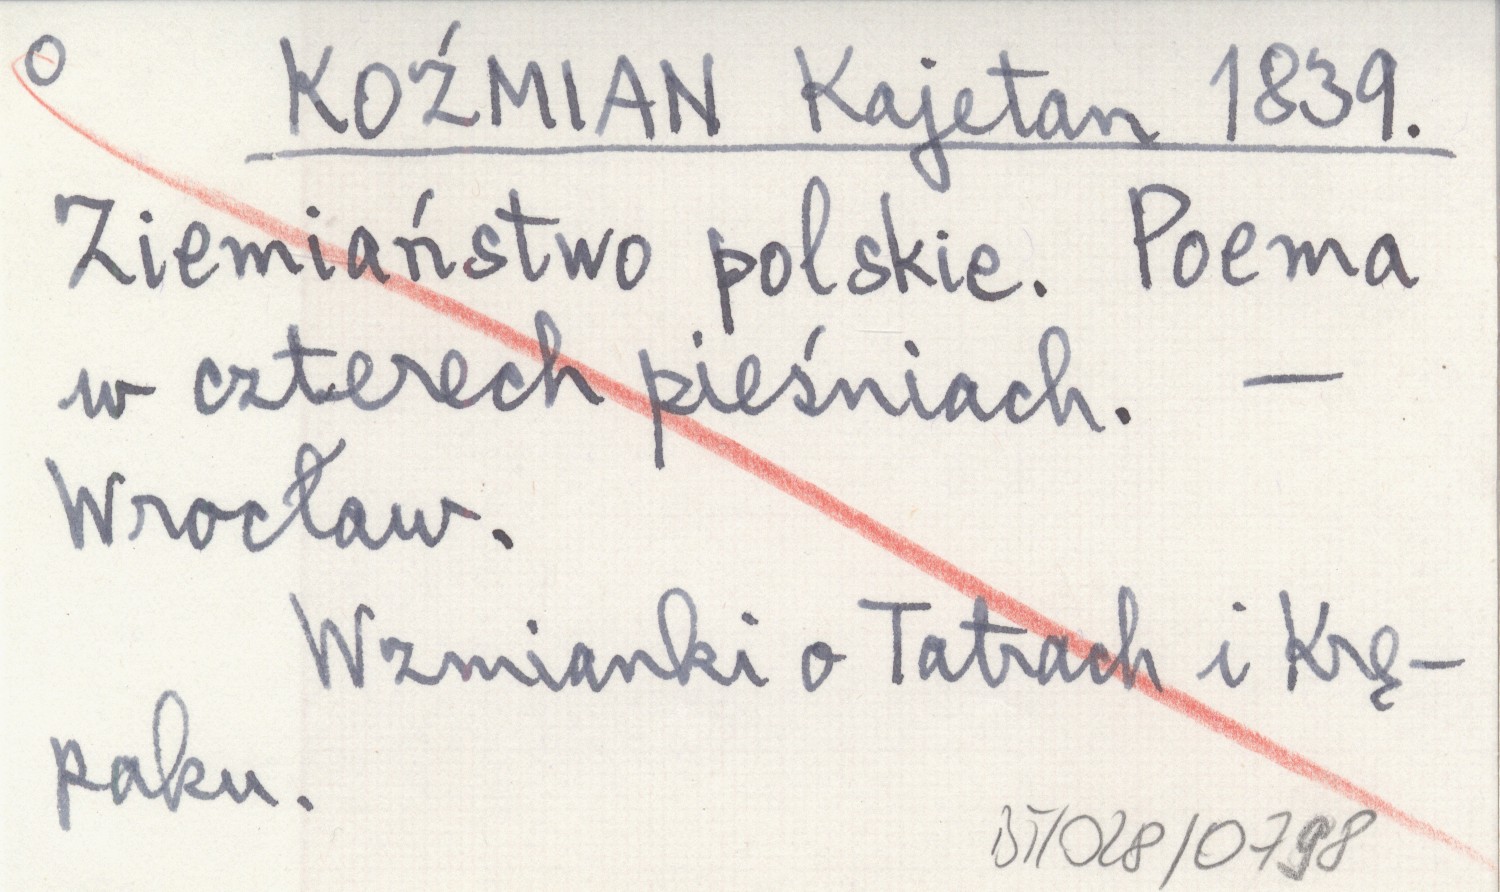 O KOŹMIAN Kajetan 1839.
Ziemiaństwo polskie. Poema
w czterech pieśniach. —
Wrocław.
Wzmianki o Tatrach i Krę-
paku.
BT/028/0798